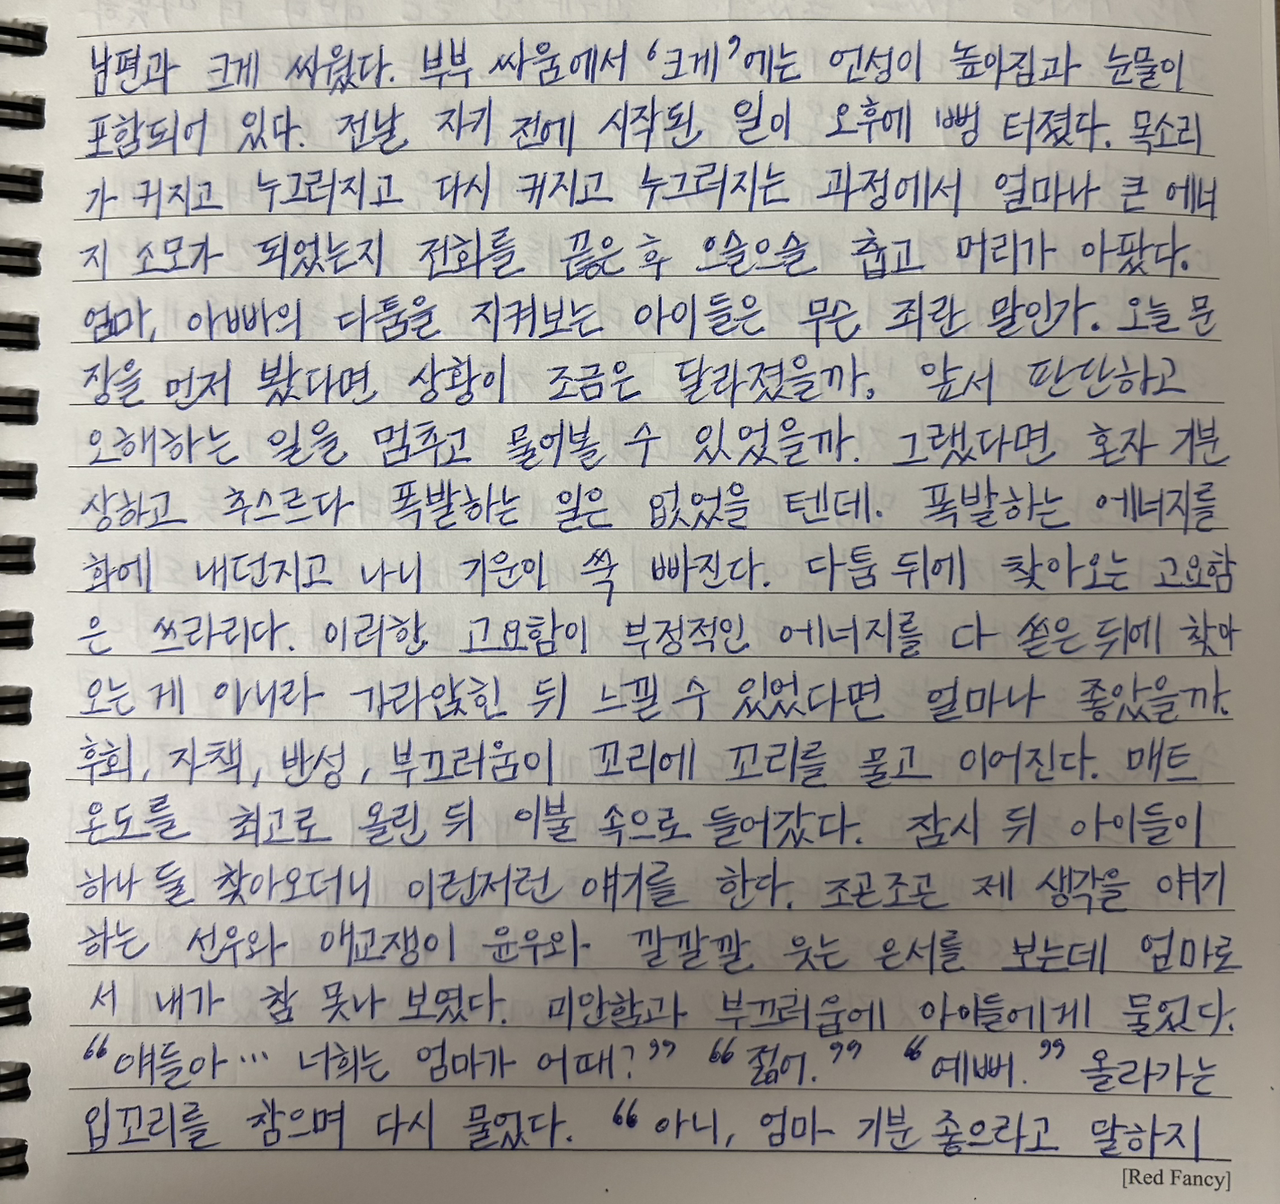 남편과 크게 싸웠다. 부부 싸움에서 ‘크게’에는 언성이 높아짐과 눈물이
포함되어 있다. 전날 자기 전에 시작된 일이 오후에 뻥 터졌다. 목소리
가 커지고 누그러지고 다시 커지고 누그러지는 과정에서 얼마나 큰 에너
지 소모가 되었는지 전화를 끊은 후 으슬으슬 춥고 머리가 아팠다.
엄마, 아빠의 다툼을 지켜보는 아이들은 무슨 죄란 말인가. 오늘 문
장을 먼저 봤다면 상황이 조금은 달라졌을까. 앞서 판단하고
오해하는 일을 멈추고 물어볼 수 있었을까. 그랬다면 혼자 기분
상하고 추스르다 폭발하는 일은 없었을 텐데. 폭발하는 에너지를
화에 내던지고 나니 기운이 쏙 빠진다. 다툼 뒤에 찾아오는 고요함
은 쓰라리다. 이러한 고요함이 부정적인 에너지를 다 쏟은 뒤에 찾아
오는 게 아니라 가라앉힌 뒤 느낄 수 있었다면 얼마나 좋았을까.
후회, 자책, 반성, 부끄러움이 꼬리에 꼬리를 물고 이어진다. 매트
온도를 최고로 올린 뒤 이불 속으로 들어갔다. 잠시 뒤 아이들이
하나 둘 찾아오더니 이런저런 얘기를 한다. 조곤조곤 제 생각을 얘기
하는 선우와 애교쟁이 윤우와 깔깔깔 웃는 은서를 보는데 엄마로
서 내가 참 못나 보였다. 미안함과 부끄러움에 아이들에게 물었다.
“얘들아… 너희는 엄마가 어때?” “젊어.” “예뻐.” 올라가는
입꼬리를 참으며 다시 물었다. “아니, 엄마 기분 좋으라고 말하지
[Red Fancy]